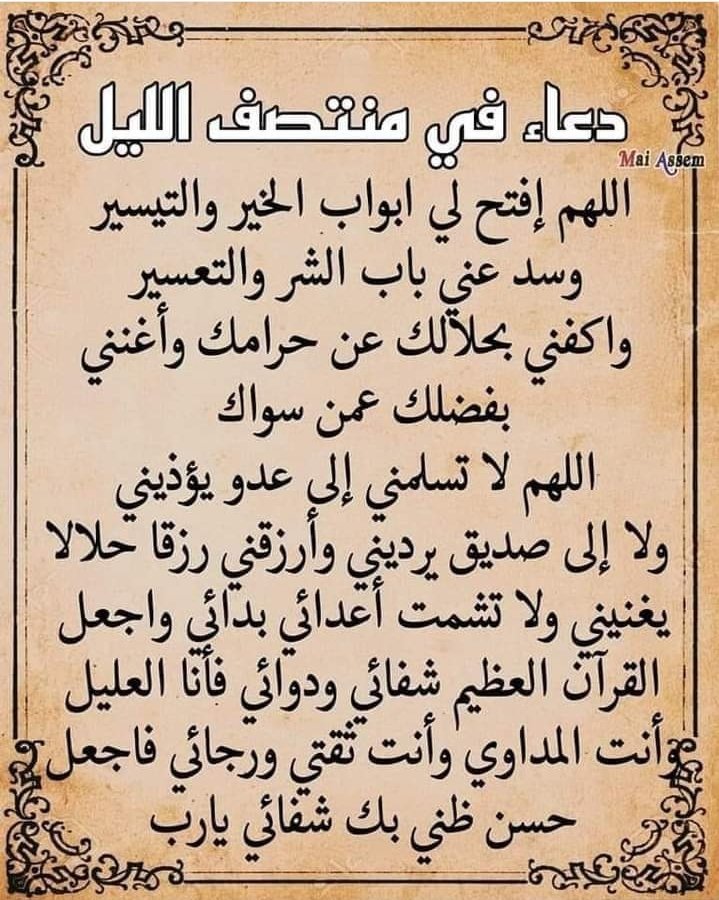 دعاء في منتصف الليل
Mai Assem
اللهم إفتح لي ابواب الخير والتيسير
وسد عني باب الشر والتعسير
واكفني بحلالك عن حرامك وأغنني
بفضلك عمن سواك
اللهم لا تسلمني إلى عدو يؤذيني
ولا إلى صديق يرديني وأرزقني رزقا حلالا
يغنيني ولا تشمت أعدائي بدائي واجعل
القرآن العظيم شفائي ودوائي فأنا العليل
وأنت المداوي وأنت ثقتي ورجائي فاجعل
حسن ظني بك شفائي يارب